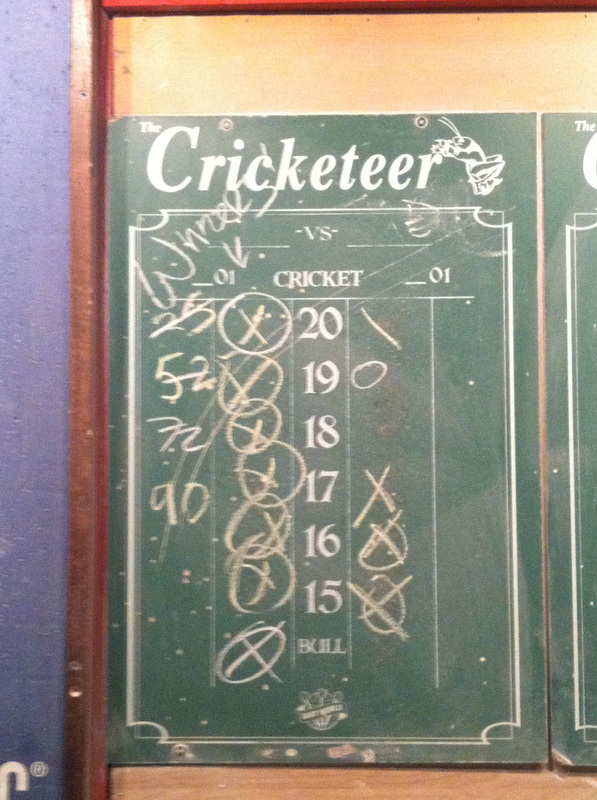 The
Cricketeer
The
C
Winner
-VS-
__01 CRICKET __01
25 X 20 \
52 X 19 O
72 X 18
90 X 17 X
X 16 X
15 X
X BULL
n®